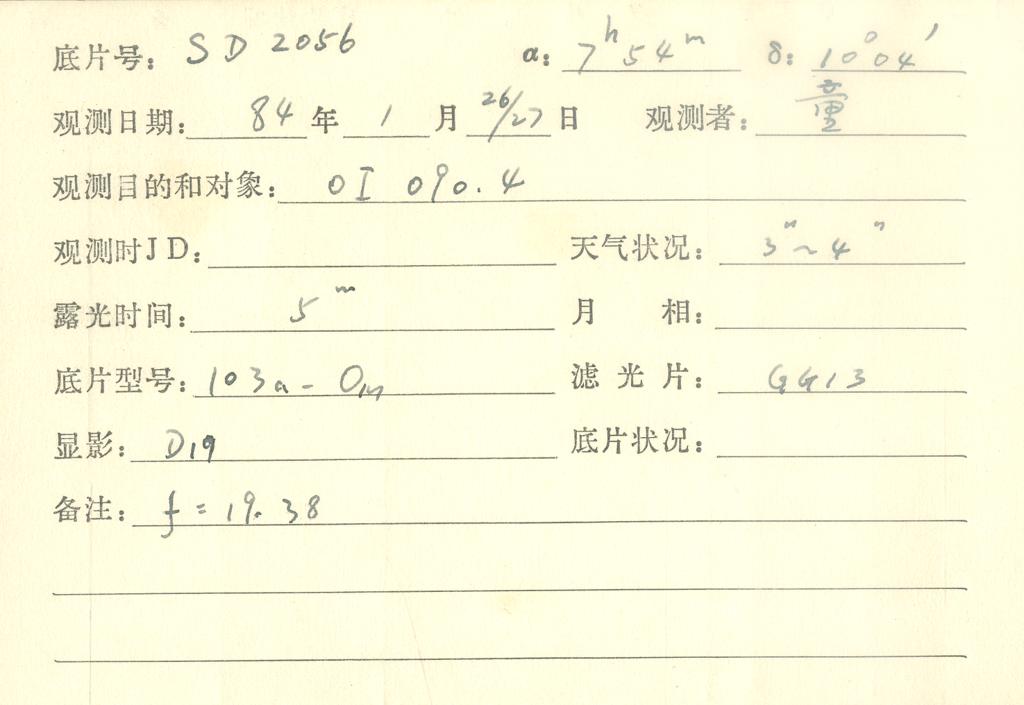 底片号: SD 2056 α: 7ʰ54ᵐ δ: 10°04′
观测日期: 84年 1月 26/27日 观测者: 童
观测目的和对象: OI 090.4
观测时JD: 天气状况: 3"~4"
露光时间: 5ᵐ 月 相:
底片型号: 103a-O 滤光片: GG13
显影: D19 底片状况:
备注: f=19.38